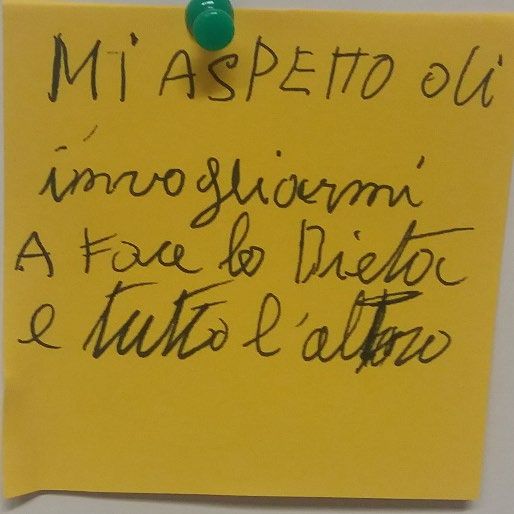 MI ASPETTO di
invogliarmi
A Face la Dieta
e tutto l'altro